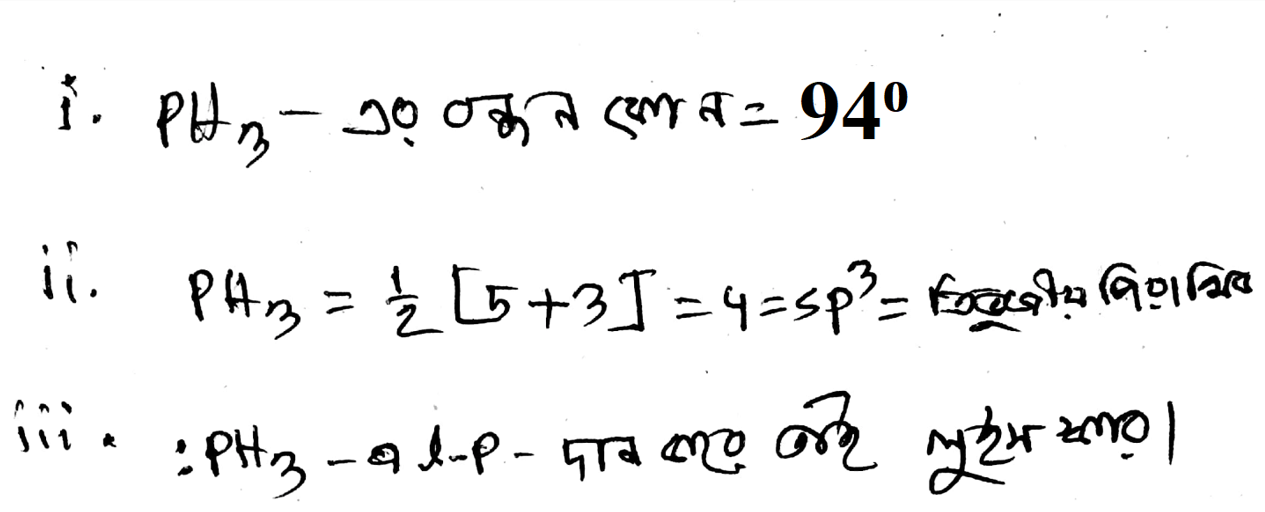 i. PH₃ – এর বন্ধন কোন = 94⁰
ii. PH₃ = ½ [5+3] = 4 = sp³ = ত্রিকোণীয় পিরামিড
iii. :PH₃ – এ l-p – দান করে তাই লুইস ক্ষার।